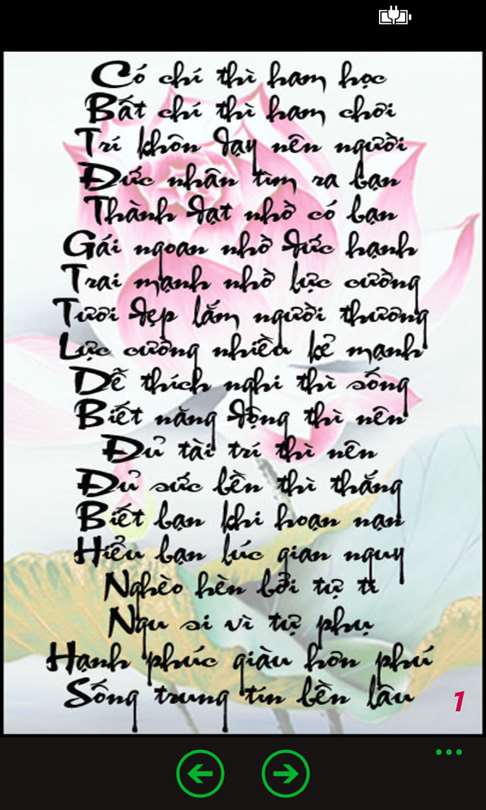 Có chí thì ham học
Bất chí thì ham chơi
Trí khôn dạy nên người
Đức nhân tìm ra bạn
Thành đạt nhờ có bạn
Gái ngoan nhờ đức hạnh
Trai mạnh nhờ lực cường
Tươi đẹp lắm người thương
Lực cường nhiều kẻ mạnh
Dễ thích nghi thì sống
Biết năng động thì nên
Đủ tài trí thì nên
Đủ sức bền thì thắng
Biết bạn khi hoạn nạn
Hiểu bạn lúc gian nguy
Nghèo hèn bởi tự ti
Ngu si vì tự phụ
Hạnh phúc giàu hơn phú
Sống trung tín bền lâu
1